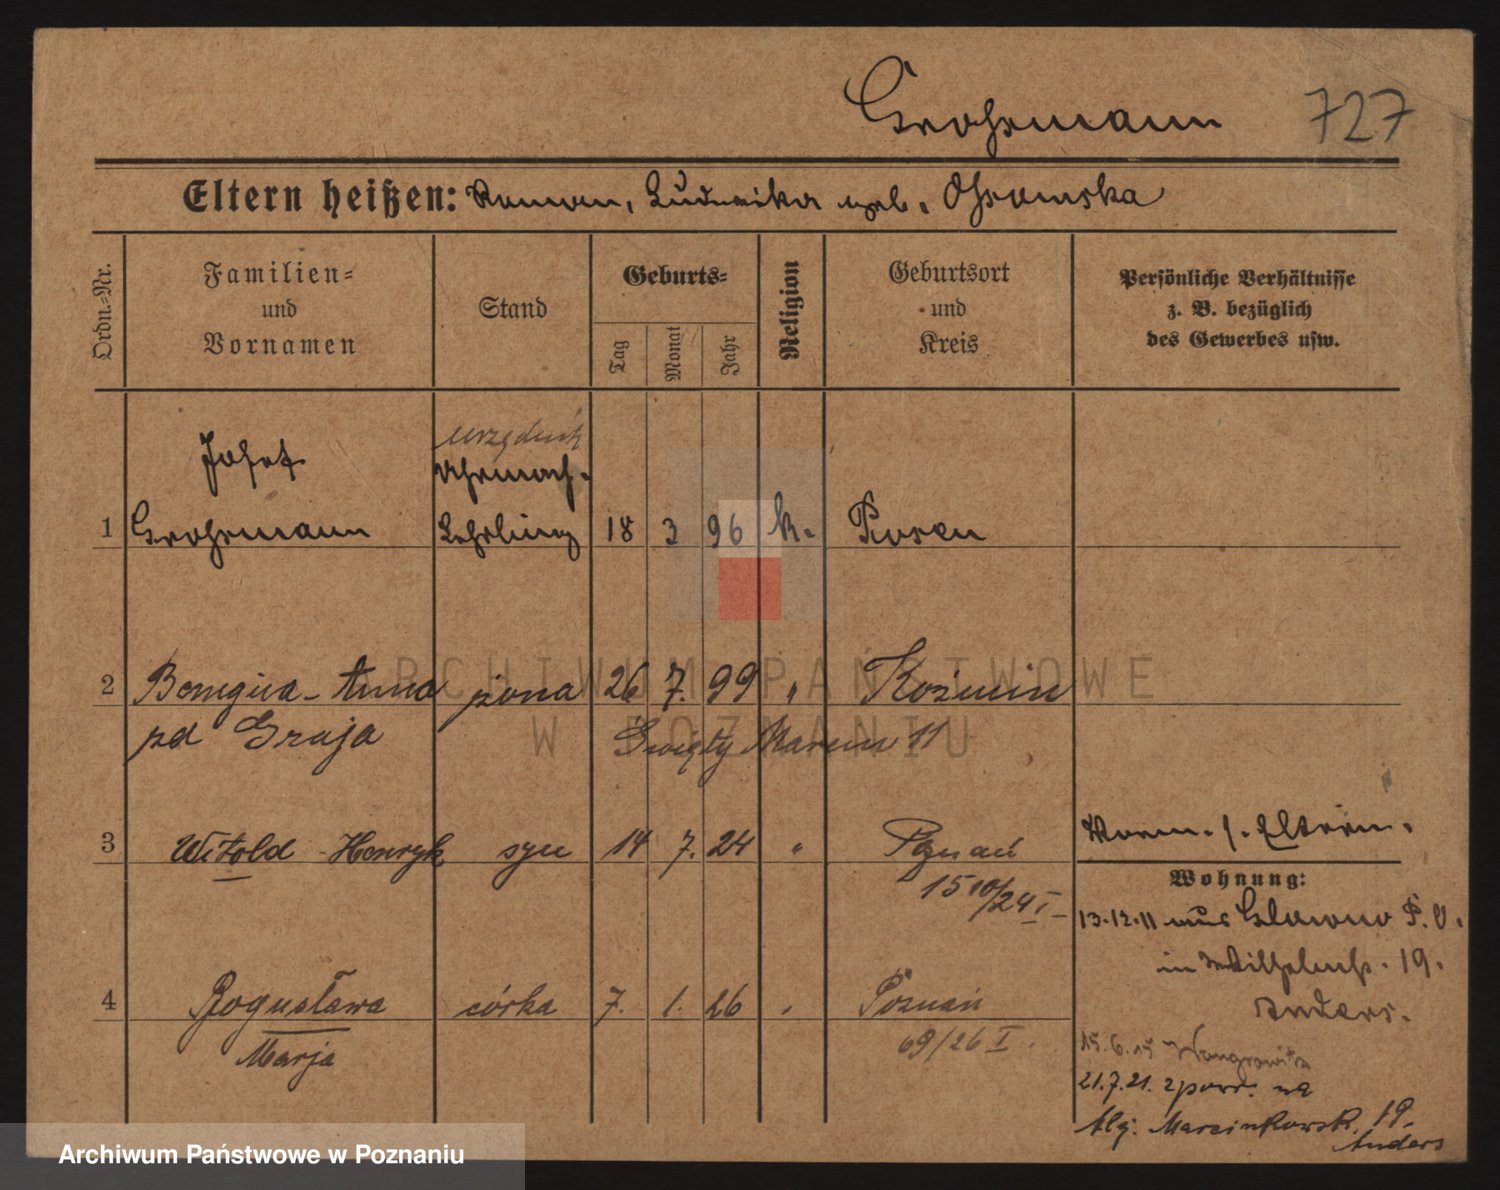 Grohsmann 727
Eltern heißen: Roman, Ludwika geb. Ohsowska
Ordn.-Nr.
Familien-
und
Vornamen
Stand
Geburts-
Tag
Monat
Jahr
Religion
Geburtsort
und
Kreis
Persönliche Verhältnisse
z. B. bezüglich
des Gewerbes usw.
urzędnik
Josef
Uhrmach.
1 Grohsmann Lehrling 18 3 96 k. Posen
2 Benigna - Anna żona 26 7. 99 " Koźmin
pd Graja Święty Marcin 11
3 Witold - Henryk syn 14 7. 24 " Poznań
Norm. s. Eltern.
15 10/24 I
Wohnung:
13.12.11 aus Glowno P.O.
in Wilhelmst. 19.
Anders.
4 Bogusława córka 7. 1. 26 " Poznań
Marja
69/26 I.
15.6.15 Wongrowitz
21.7.21. zpowr. na
Alej. Marcinkowsk. 19.
Anders
ARCHIWUM PAŃSTWOWE
W POZNANIU
Archiwum Państwowe w Poznaniu